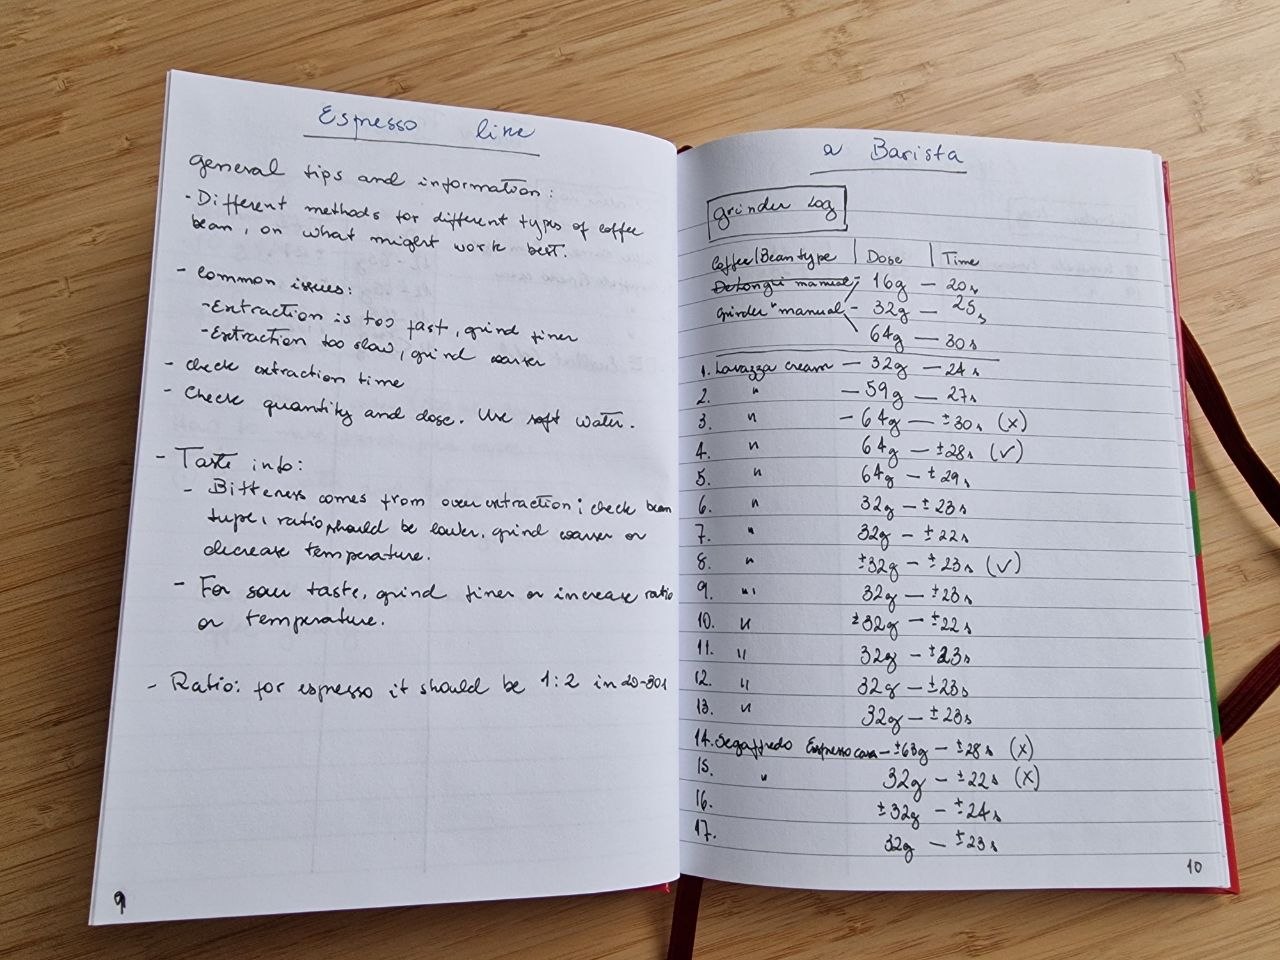 Espresso like
general tips and information:
- Different methods for different types of coffee
bean, on what might work best.
- common issues:
- Extraction is too fast, grind finer
- Extraction too slow, grind coarser
- check extraction time
- Check quantity and dose. Use soft water.
- Taste info:
- Bitterness comes from over extraction; check bean
type, ratio should be lower, grind coarser or
decrease temperature.
- For sour taste, grind finer or increase ratio
or temperature.
- Ratio: for espresso it should be 1:2 in 20-30s
9
a Barista
grinder log
Coffee/Bean type | Dose | Time
DeLonghi manual; 16g — 20s
grinder "manual - 32g — 25s
64g — 30s
1. Lavazza cream — 32g — 24s
2. " — 59g — 27s
3. " - 64g — ±30s (x)
4. " 64g — ±28s (✓)
5. " 64g — ±29s
6. " 32g — ±23s
7. " 32g — ±22s
8. " ±32g — ±23s (✓)
9. " 32g — ±23s
10. " ±32g — ±22s
11. " 32g — ±23s
12. " 32g — ±23s
13. " 32g — ±23s
14. Segaffredo Espresso casa — ±63g — ±28s (x)
15. " 32g — ±22s (x)
16. ±32g — ±24s
17. 32g — ±23s
10